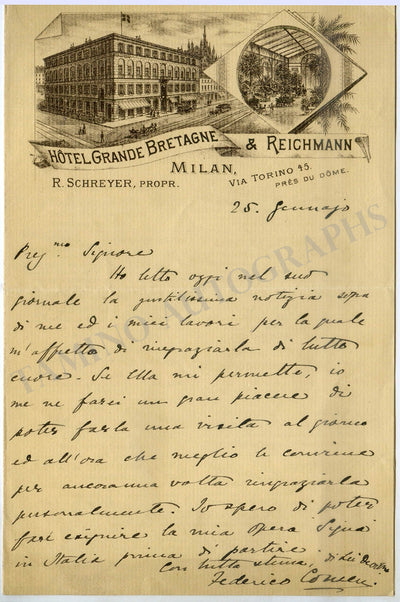 HÔTEL GRANDE BRETAGNE & REICHMANN
MILAN,
R. SCHREYER, PROPR.
VIA TORINO 45.
PRÈS DU DÔME.
25. Gennajo
Preg.mo Signore
Ho letto oggi nel suo
giornale la gentilissima notizia sopra
di me ed i miei lavori per la quale
m'affretto di ringraziarla di tutto
cuore. Se Ella mi permette, io
me ne farei un gran piacere di
poter farla una visita al giorno
ed all'ora che meglio le conviene
per ancora una volta ringraziarla
personalmente. Io spero di poter
far eseguire la mia opera Signa
in Italia prima di partire.
Con tutta stima, di Lei
Federico Cowen.
TAMINO AUTOGRAPHS